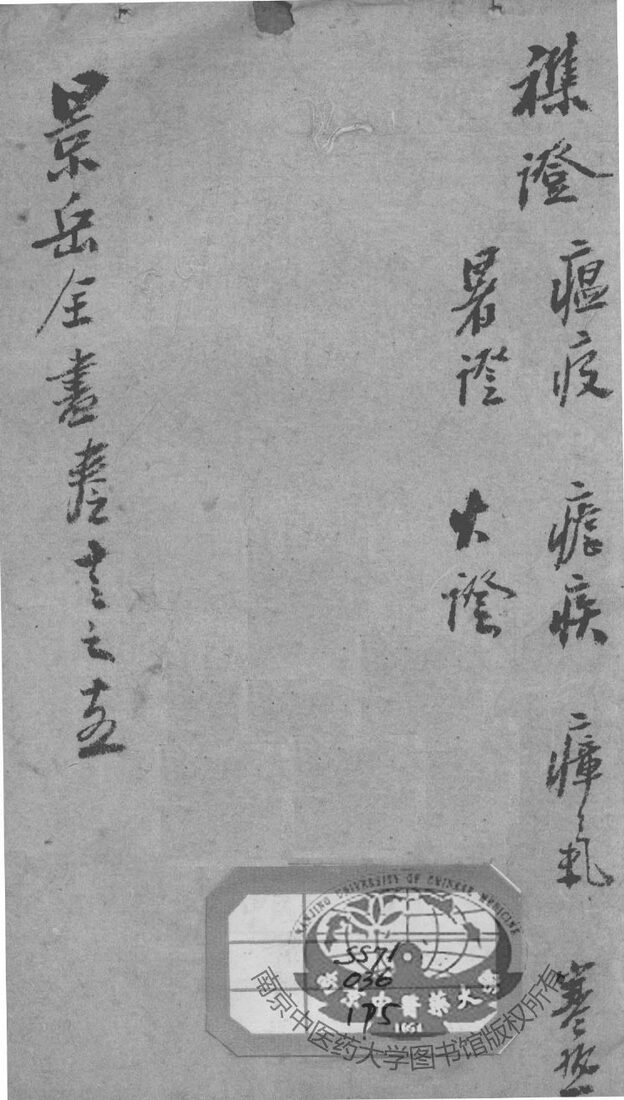 襍證 瘟疫 瘧疾 瘴氣 寒熱
暑證 火證
景岳全書卷十三之十五
NANJING UNIVERSITY OF CHINESE MEDICINE
SS71
036
175
南京中醫藥大學
南京中医药大学图书馆版权所有